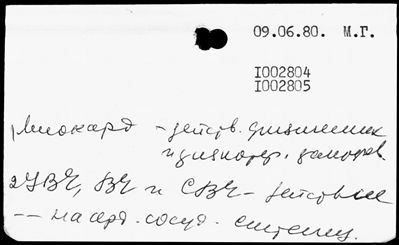 09.06.80. М.Г.
I002804
I002805
1 Миокард - действ. физических
и физиотер. факторов.
2 УВЧ, ВЧ и СВЧ - действие
-- на серд. сосуд. систему.